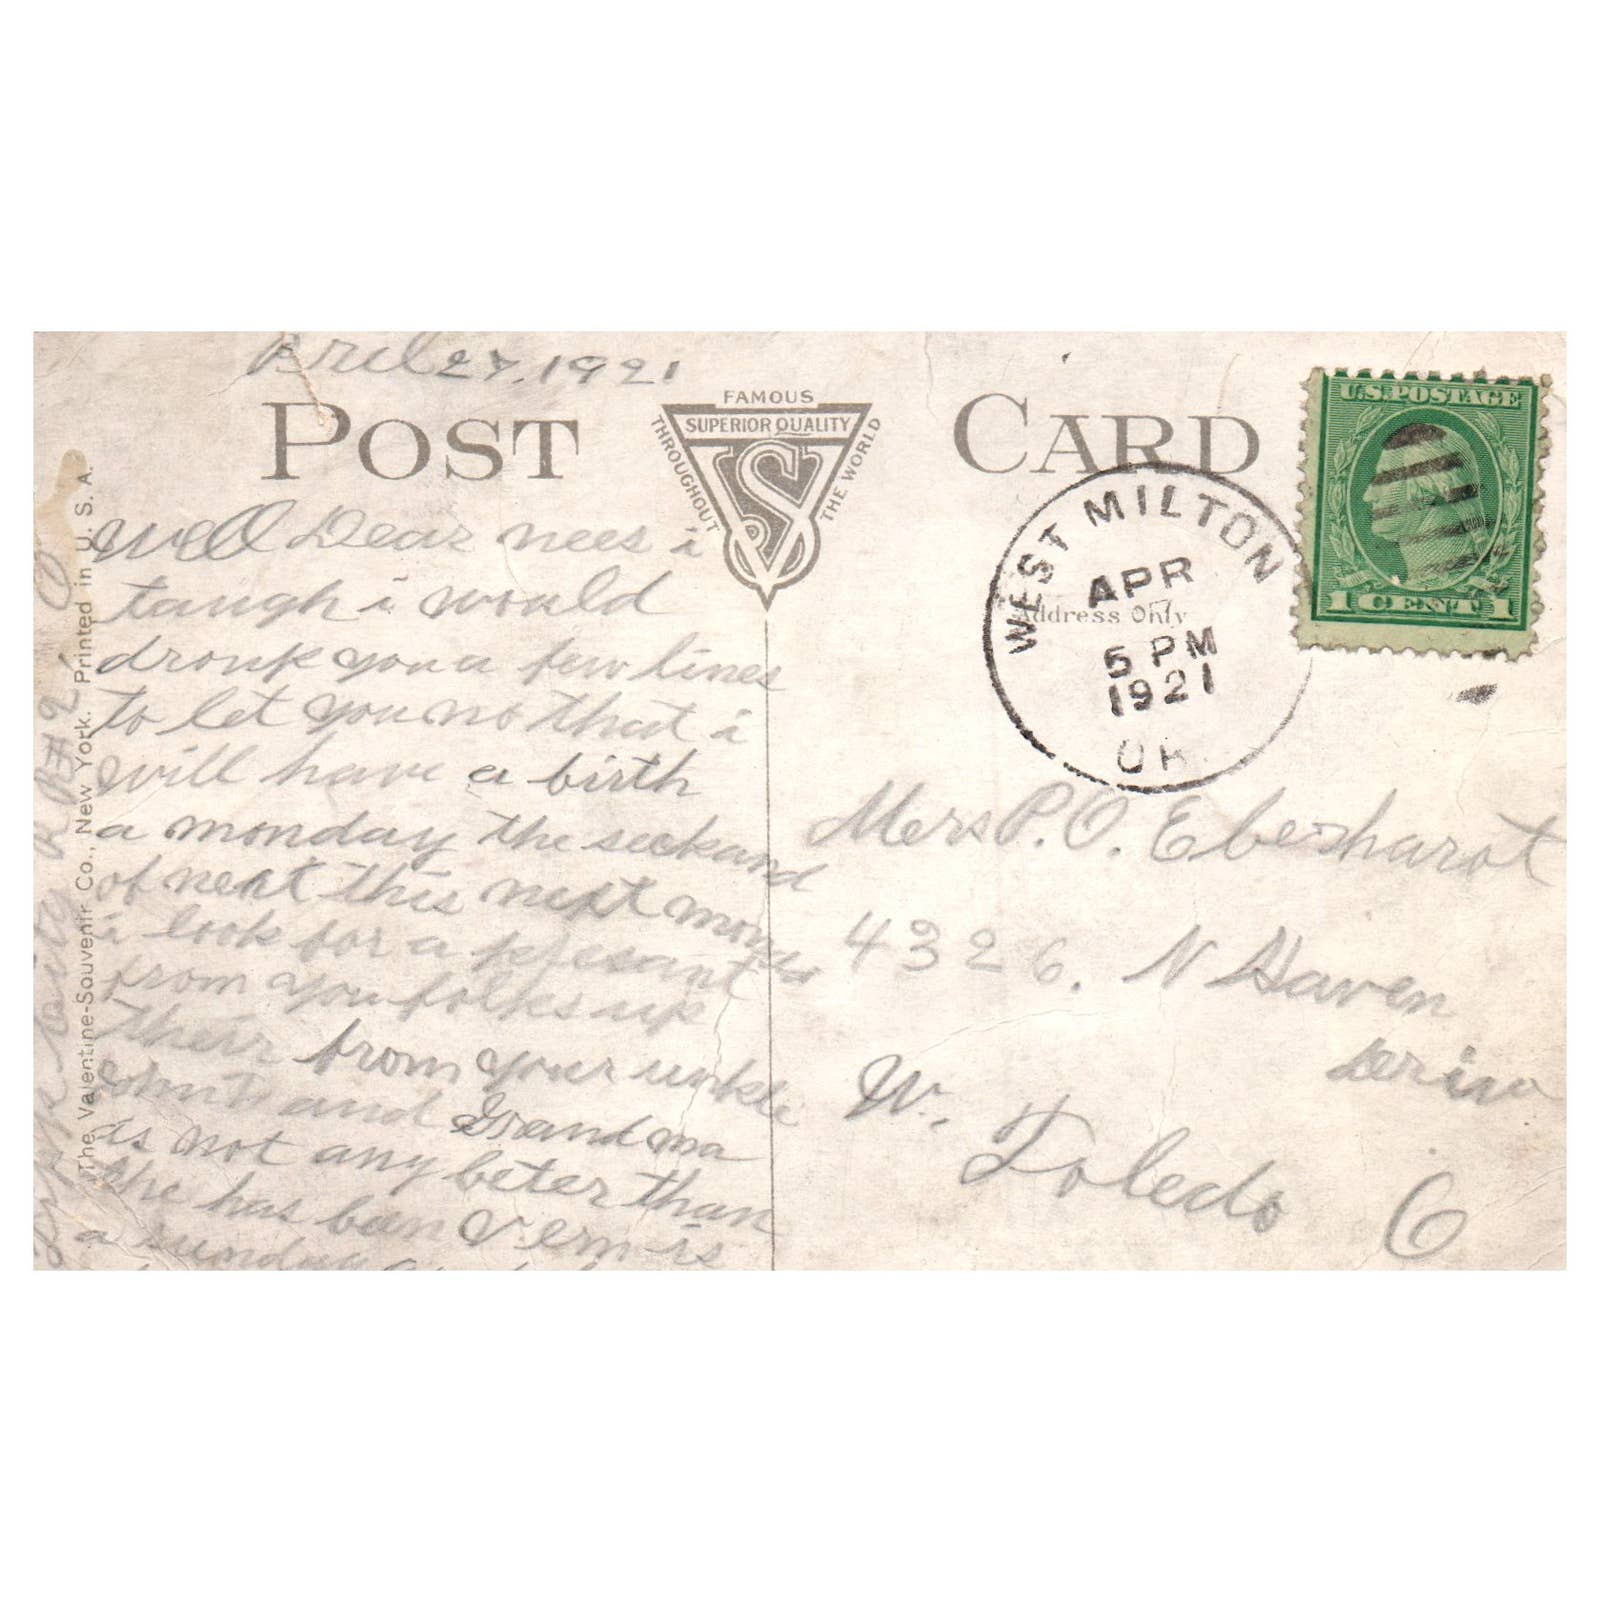 Bril 27, 1921
POST CARD
FAMOUS
SUPERIOR QUALITY
THROUGHOUT
THE WORLD
VS
Well Dear nees i
taugh i would
dronk you a few lines
to let you no that i
will have a birth
a monday the seckand
of neat this next month
i look for a presant
from you folks up
their from your unkle
and Grandma
is not any beter than
she has been Vern is
a sunday
The Valentine-Souvenir Co., New York. Printed in U. S. A.
R #2
O
WEST MILTON
APR
5 PM
1921
OH.
Address Only
U.S. POSTAGE
1 CENT 1
Mers P. O. Eberharot
4326. N Haven
W. Toledo O